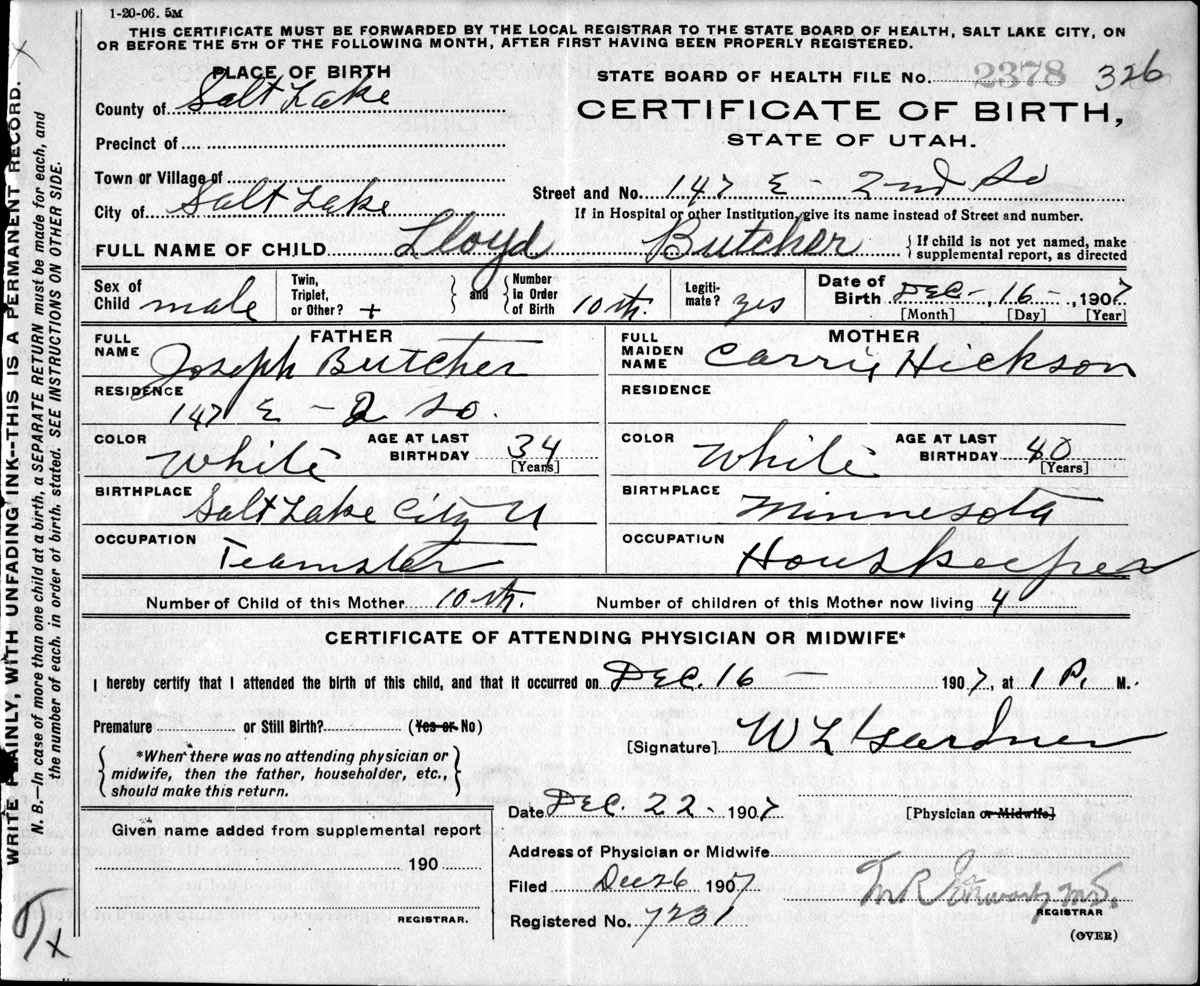 1-20-06. 5M
THIS CERTIFICATE MUST BE FORWARDED BY THE LOCAL REGISTRAR TO THE STATE BOARD OF HEALTH, SALT LAKE CITY, ON
OR BEFORE THE 5TH OF THE FOLLOWING MONTH, AFTER FIRST HAVING BEEN PROPERLY REGISTERED.
WRITE PLAINLY, WITH UNFADING INK--THIS IS A PERMANENT RECORD.
N. B.—In case of more than one child at a birth, a SEPARATE RETURN must be made for each, and
the number of each, in order of birth, stated. SEE INSTRUCTIONS ON OTHER SIDE.
PLACE OF BIRTH
County of Salt Lake
Precinct of
Town or Village of
City of Salt Lake
STATE BOARD OF HEALTH FILE No. 2378 326
CERTIFICATE OF BIRTH,
STATE OF UTAH.
Street and No. 147 E - 2nd So
If in Hospital or other Institution, give its name instead of Street and number.
FULL NAME OF CHILD Lloyd Butcher
If child is not yet named, make
supplemental report, as directed
Sex of
Child male
Twin,
Triplet,
or Other? +
and
Number
in Order
of Birth 10th.
Legiti-
mate? yes
Date of
Birth Dec-, 16-, 1907
[Month] [Day] [Year]
FATHER
FULL
NAME Joseph Butcher
RESIDENCE
147 E - 2 So.
COLOR White
AGE AT LAST
BIRTHDAY 34
[Years]
BIRTHPLACE Salt Lake City U
OCCUPATION Teamster
MOTHER
FULL
MAIDEN
NAME Carrie Hickson
RESIDENCE
COLOR White
AGE AT LAST
BIRTHDAY 40
[Years]
BIRTHPLACE Minnesota
OCCUPATION Houskeeper
Number of Child of this Mother 10th. Number of children of this Mother now living 4
CERTIFICATE OF ATTENDING PHYSICIAN OR MIDWIFE*
I hereby certify that I attended the birth of this child, and that it occurred on Dec. 16 - 1907, at 1 P. M.
Premature or Still Birth? (Yes or No)
*When there was no attending physician or
midwife, then the father, householder, etc.,
should make this return.
[Signature] W L Gardner
[Physician or Midwife]
Given name added from supplemental report
190
REGISTRAR.
Date Dec. 22 - 1907
Address of Physician or Midwife
Filed Dec 26 1907
Registered No. 7231
REGISTRAR
(OVER)